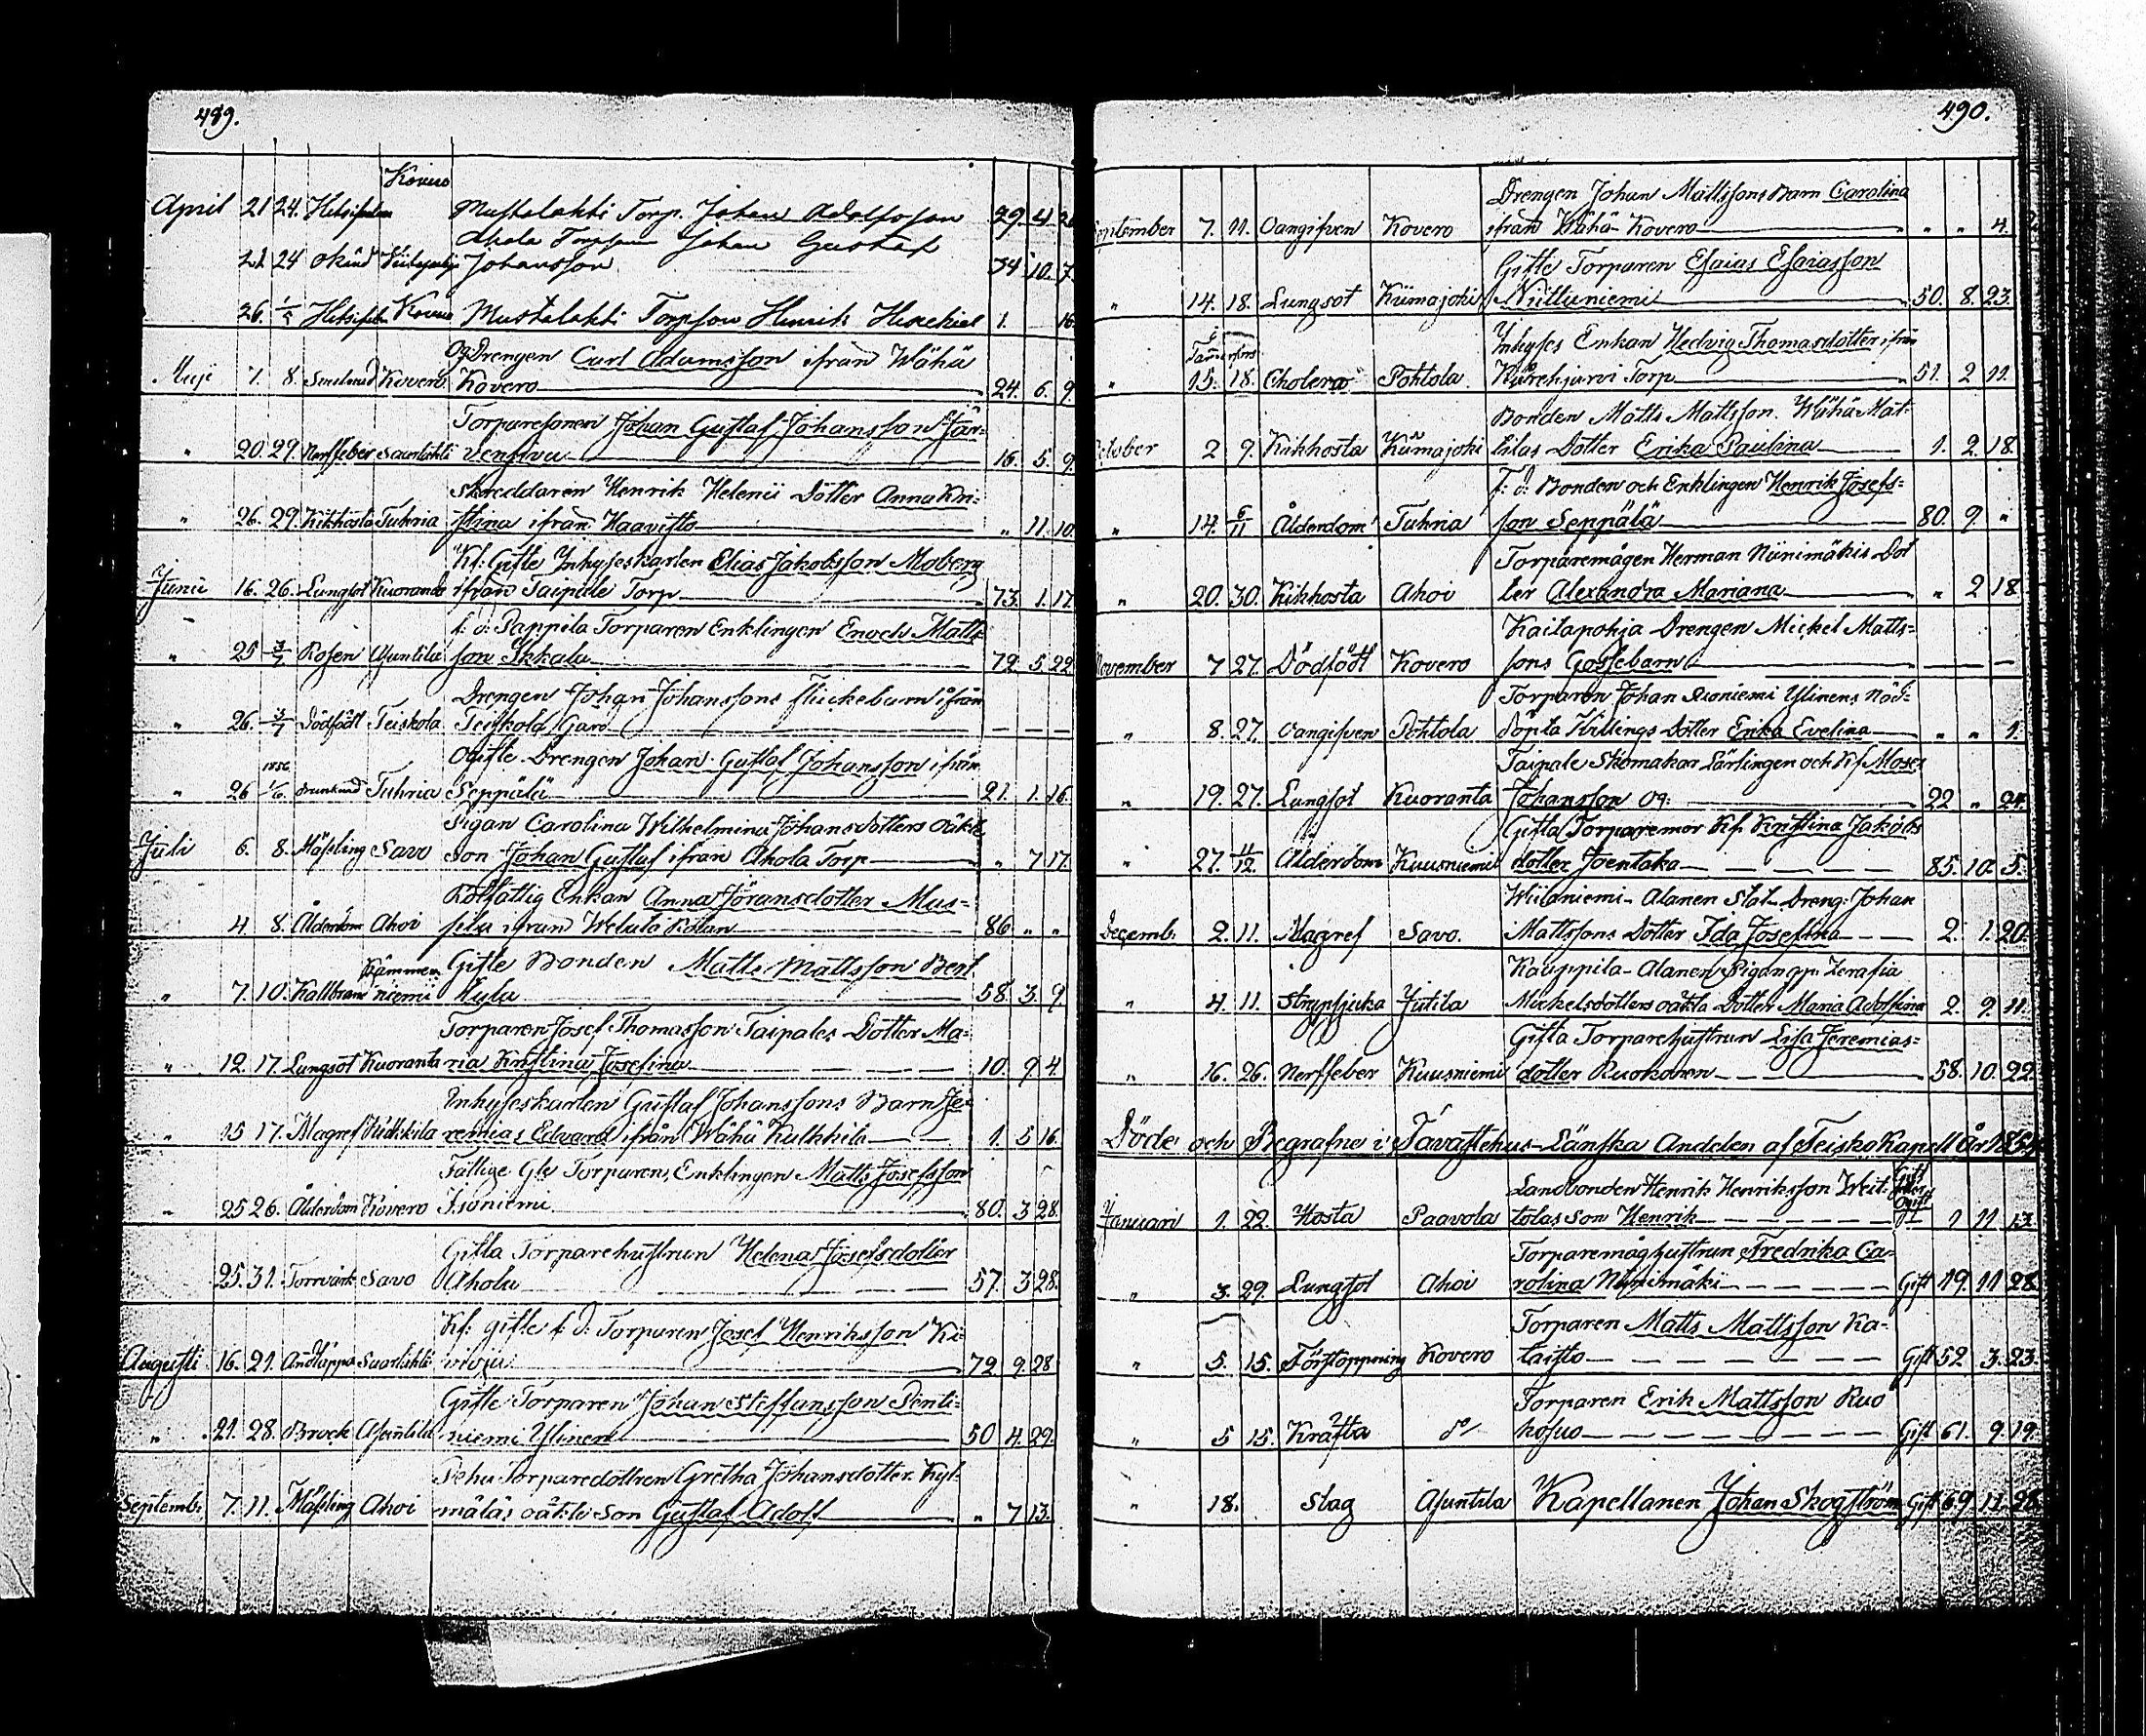 489.
Kovero
April 21 24. Hetsifeber Mustalahti Torp. Johan Adolfsson 29. 4. 2
Ahola Torpson Johan Gustaf
21 24 okänd Johansson 34 10. 7
26. 1/5 Hetsifeber Kovero Mustalahti Torpson Henrik Hesekiel 1. 16.
Og Drengen Carl Adamsson ifrån Wähä
Maji 7. 8. Kovero Kovero 24. 6. 9.
Torparesonen Johan Gustaf Johansson Jär-
" 20. 29. Nerffeber Saarlahti venpää 16. 5. 9.
Skreddaren Henrik Helenii Dotter Anna Kri-
" 26. 29. Kikhosta Tuhria stina ifrån Haavisto " 11. 10.
Kf: Gifte Inhyseskarlen Elias Jakobsson Moberg
Junii 16. 26. Lungsot Kuoranda ifrån Taipale Torp 73. 1. 17.
f: d: Pappila Torparen Enklingen Enoch Matts-
" 25 3/7 Rosen Asuntila son Ikkala 72. 5. 22
Drengen Johan Johanssons flickebarn ifrån
" 26. 3/7 Dödfödt Teiskola Teiskola Gård — — —
1856 Ogifte Drengen Johan Gustaf Johansson ifrån
" 26 1/6. Drunknad Tuhria Seppälä 21. 1. 16.
Pigan Carolina Wilhelmina Johansdotters oäkta
Juli 6. 8. Mässling Savo son Johan Gustaf ifrån Ahola Torp " 7. 17.
Rotfattig Enkan Anna Jöransdotter Mus-
4 8. Ålderdom Ahoi sila ifrån Rotan 86 " "
Kämmen Gifte Bonden Matts Mattsson Berl
" 7. 10. Kallbrand niemi Kyla 58. 3. 9
Torparen Josef Thomasson Taipales Dotter Ma-
" 12. 17. Lungsot Kuoranta ria Kristina Josefina 10. 9 4.
Inhyseskarlen Gustaf Johanssons Barn Je-
" 15 17. Magref Kulkkila remias Edvard ifrån Wähä Kulkkila 1. 5 16.
Fattige Gle Torparen, Enklingen Matts Josefsson
" 25 26. Ålderdom Kovero Isoniemi 80. 3 28.
Gifta Torparehustrun Helena Josefsdotter
25. 31. Torrvärk Savo Ahola 57. 3 28.
Kf: gifte f: d: Torparen Josef Henriksson Ki-
Augusti 16. 21. Andtäppa Saarlahti vioja 72. 9. 28
Gifte Torparen Johan Steffansson Penti-
" 21. 28. Brock Asuntila niemi Ylinen 50 4. 29.
Torparedottren Gretha Johansdotter Kyl-
Septemb: 7. 11. Mässling Ahoi mäläs oäkta son Gustaf Adolf " 7 13.
490.
Drengen Johan Mattssons Barn Carolina
September 7. 11. Oangifven Kovero ifrån Wähä-Kovero " " 4.
Gifte Torparen Esaias Esaiasson
" 14. 18. Lungsot Kiimajoki Niittuniemi 50. 8. 23.
i
Tamerfors Inhyses Enkan Hedvig Thomasdotter ifrån
" 15. 18. Cholera Pohtola Kärehjärvi Torp 51. 2 11.
Bonden Matts Mattsson Wähä Mat-
October 2 9. Kikhosta Kiimajoki tilas Dotter Erika Paulina 1. 2. 18.
f: d: Bonden och Enklingen Henrik Josefs-
" 14. 6/11 Ålderdom Tuhria son Seppälä 80. 9. "
Torparemågen Herman Niinimäkis Dot
" 20. 30. Kikhosta Ahoi ter Alexandra Mariana " 2 18
Kaitapohja Drengen Mickel Matts-
November 7 27. Dödfödt Kovero sons Gossebarn — — —
Torparen Johan Isoniemi Ylinens Nöd-
" 8. 27. oangifven Pohtola döpta Tvillings Dotter Erika Evelina " " 1.
Taipale Skomakar Lärlingen och Kf Moses
" 19. 27. Lungsot Kuoranta Johansson Og: 22 " 24.
Gifta Torparemor Kf. Kristina Jakobs
" 27. 11/12. Ålderdom Kuusniemi dotter Joentaka 85. 10. 5.
Wiidaniemi-Alanen Stat-Dreng: Johan
Decemb: 2. 11. Magref Savo. Mattssons Dotter Ida Josefina 2. 1. 20.
Kauppila-Alanen Pigan Serafia
" 4. 11. Strypsjuka Jutila Mickelsdotters oäkta Dotter Maria Adolfina 2. 9. 11.
Gifta Torparehustrun Lisa Jeremias-
" 16. 26. Nerffeber Kuusniemi dotter Ruokonen 58. 10. 22.
Döde och Begrafne i Tavastehus-Länska Andelen af Teisko Kapell År 1854
Landbonden Henrik Henriksson Weit- Gift eller Ogift
Januari 1. 22. Hosta Paavola tolas son Henrik 1 11 13.
Torparemåghustrun Fredrika Ca-
" 3. 29. Lungsot Ahoi rolina Niinimäki Gift 19. 11 28.
Torparen Matts Mattsson Ka-
" 5. 15. Förstoppning Kovero taisto Gift 52. 3. 23.
Torparen Erik Mattsson Ruo
" 5 15. Kräfta do/ kosuo Gift 61. 9. 19.
" 18. Slag Asuntila Kapellanen Johan Skogström Gift 69. 11. 28